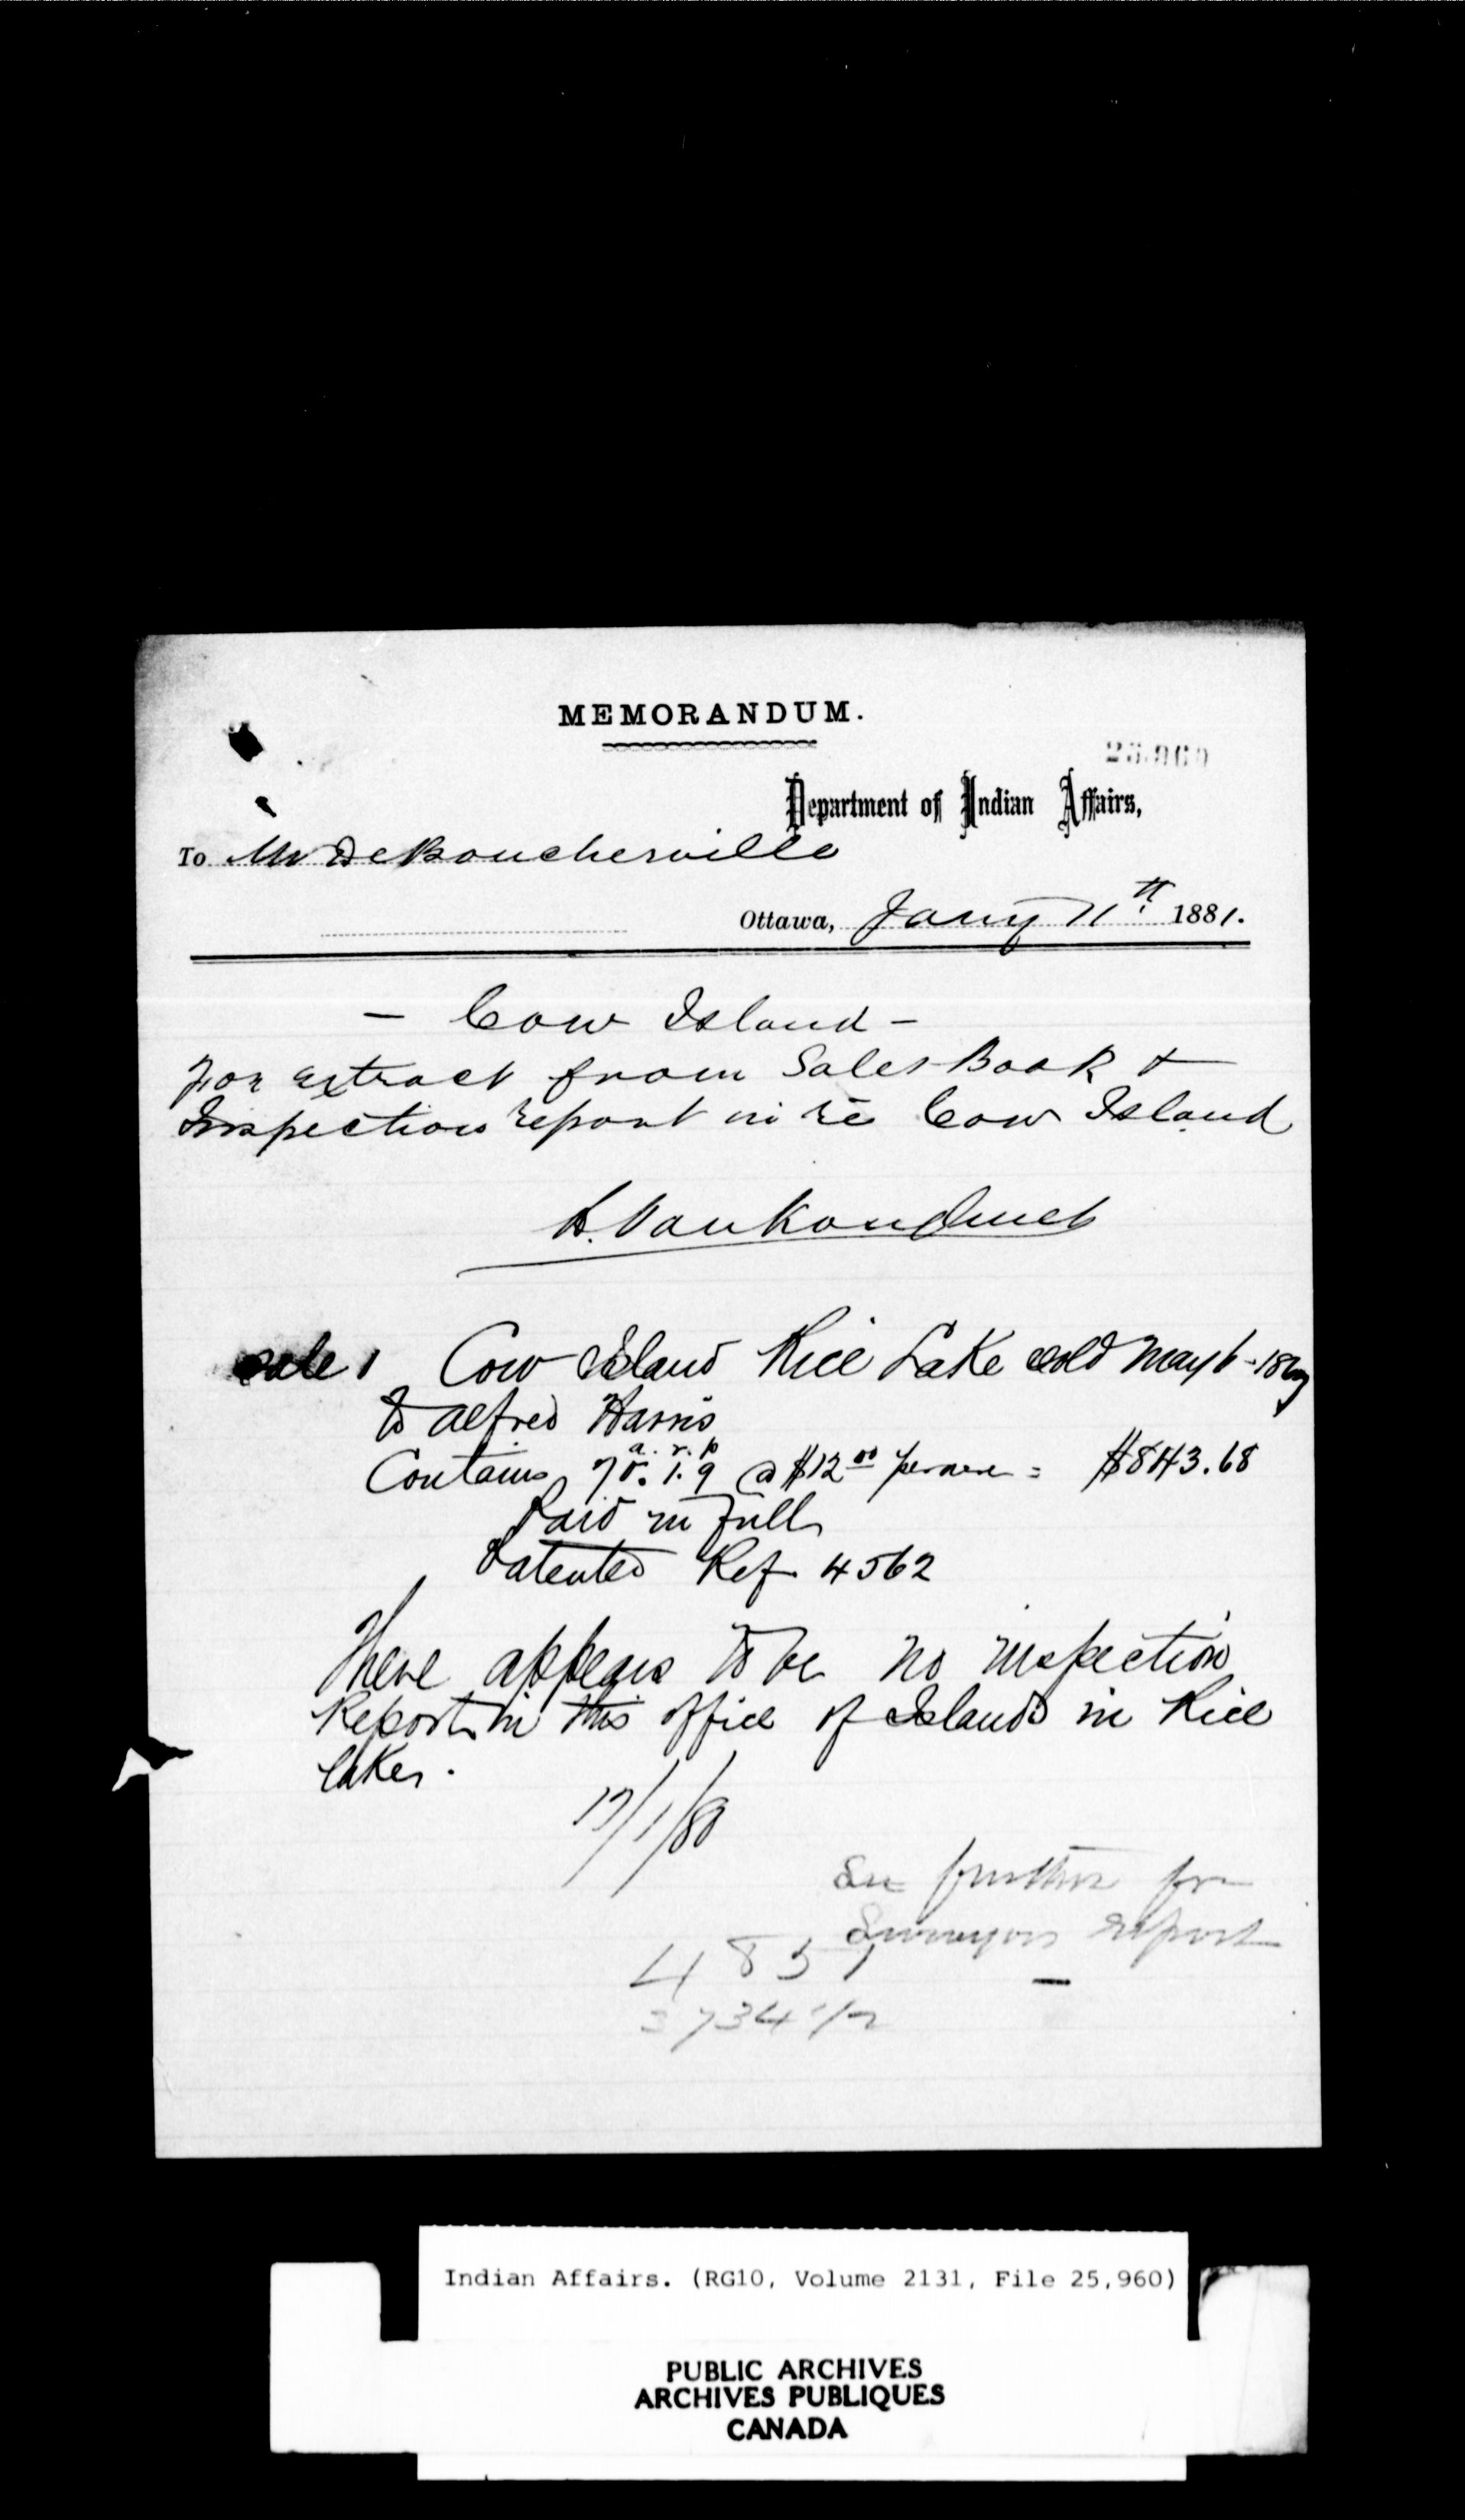 MEMORANDUM.
25.960
Department of Indian Affairs,
To Mr DeBoucherville
Ottawa, Jany 11th 1881.
- Cow Island -
For extract from Sales Book &
Inspection report in re Cow Island
L. VanKoughnet
Sale 1 Cow Island Rice Lake sold May 6 - 1867
to Alfred Harris
a. r. p
Contains 70. 1. 9 @ $12 00 per acre = $843.68
Paid in full
Patented Ref 4562
There appears to be no inspection
Report in this office of Islands in Rice
Lake.
17/1/80
See further for
Surveyors report
4837
3734 1/2
Indian Affairs. (RG10, Volume 2131, File 25,960)
PUBLIC ARCHIVES
ARCHIVES PUBLIQUES
CANADA